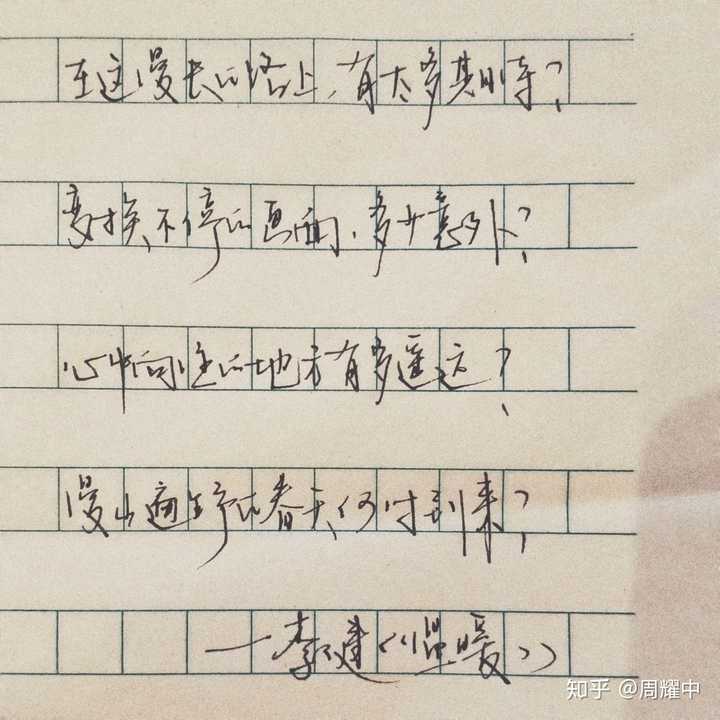 在这漫长的路上,有太多期待?
变换不停的画面,多少意外?
心中向往的地方有多遥远?
漫山遍野的春天何时到来?
—李健《温暖》
知乎 @周耀中